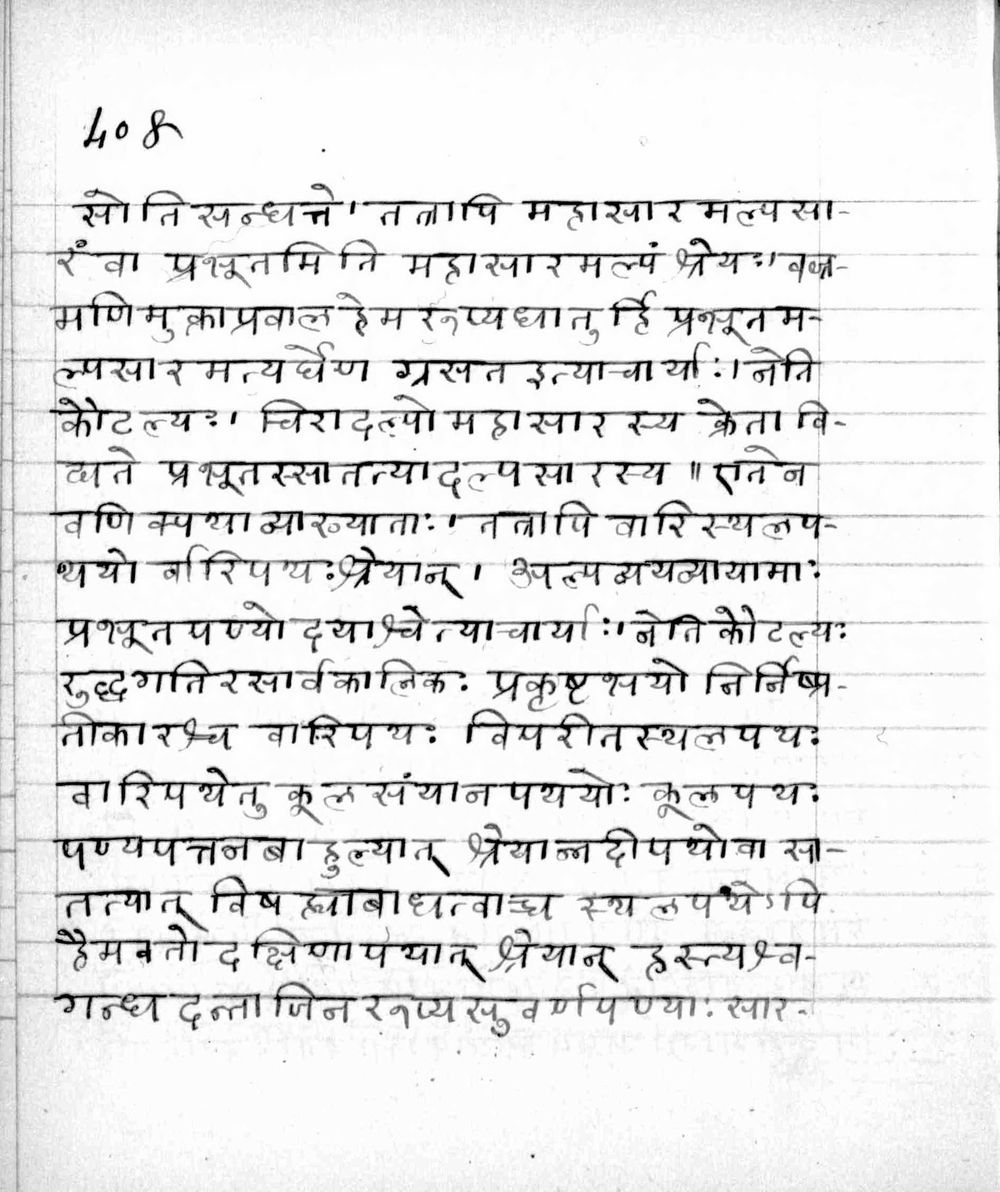 408
सोतिसन्धत्ते। तत्रापि महासारमल्पसा-
रं वा प्रभूतमिति महासारमल्पं श्रेयः। वज्र-
मणिमुक्ताप्रवालहेमरूप्यधातुर्हि प्रभूतम-
ल्पसारमत्यर्घेण ग्रसत इत्याचार्याः। नेति
कौटल्यः। चिरादल्पो महासारस्य क्रेता वि-
द्यते प्रभूतस्सातत्यादल्पसारस्य॥ एतेन
वणिक्पथा व्याख्याताः। तत्रापि वारिस्थलप-
थयोर्वारिपथः श्रेयान्। अल्पव्ययव्यायामाः
प्रभूतपण्योदयाश्चेत्याचार्याः। नेति कौटल्यः
रुद्धगतिरसार्वकालिकः प्रकृष्टभयो निर्निष्प्र-
तीकारश्च वारिपथः विपरीतस्थलपथः
वारिपथेतु कूलसंयानपथयोः कूलपथः
पण्यपत्तनबाहुल्यात् श्रेयान्नदीपथो वा सा-
तत्यात् विषह्याबाधत्वाच्च स्थलपथेऽपि
हैमवतो दक्षिणापथात् श्रेयान् हस्त्यश्व-
गन्धदन्ताजिनरूप्यसुवर्णपण्याः सार-